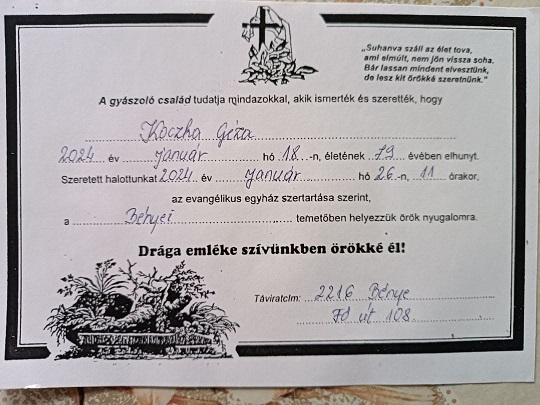 „Suhanva száll az élet tova,
ami elmúlt, nem jön vissza soha.
Bár lassan mindent elvesztünk,
de lesz kit örökké szeretnünk."
A gyászoló család tudatja mindazokkal, akik ismerték és szerették, hogy
Koczka Géza
2024 év január hó 18-n, életének 79 évében elhunyt.
Szeretett halottunkat 2024 év január hó 26-n, 11 órakor,
az evangélikus egyház szertartása szerint,
a Bényei temetőben helyezzük örök nyugalomra.
Drága emléke szívünkben örökké él!
Táviratcím: 2216 Bénye
Fő út 108